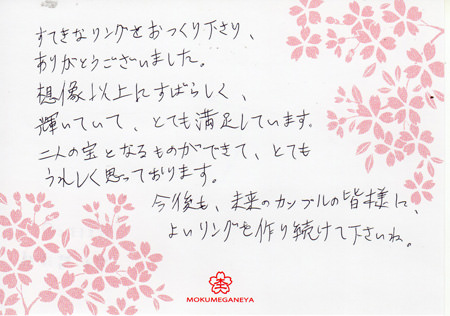 すてきなリングをおつくり下さり、
ありがとうございました。
想像以上にすばらしく、
輝いていて、とても満足しています。
二人の宝となるものができて、とても
うれしく思っております。
今後も、未来のカップルの皆様に、
よいリングを作り続けて下さいね。
MOKUMEGANEYA